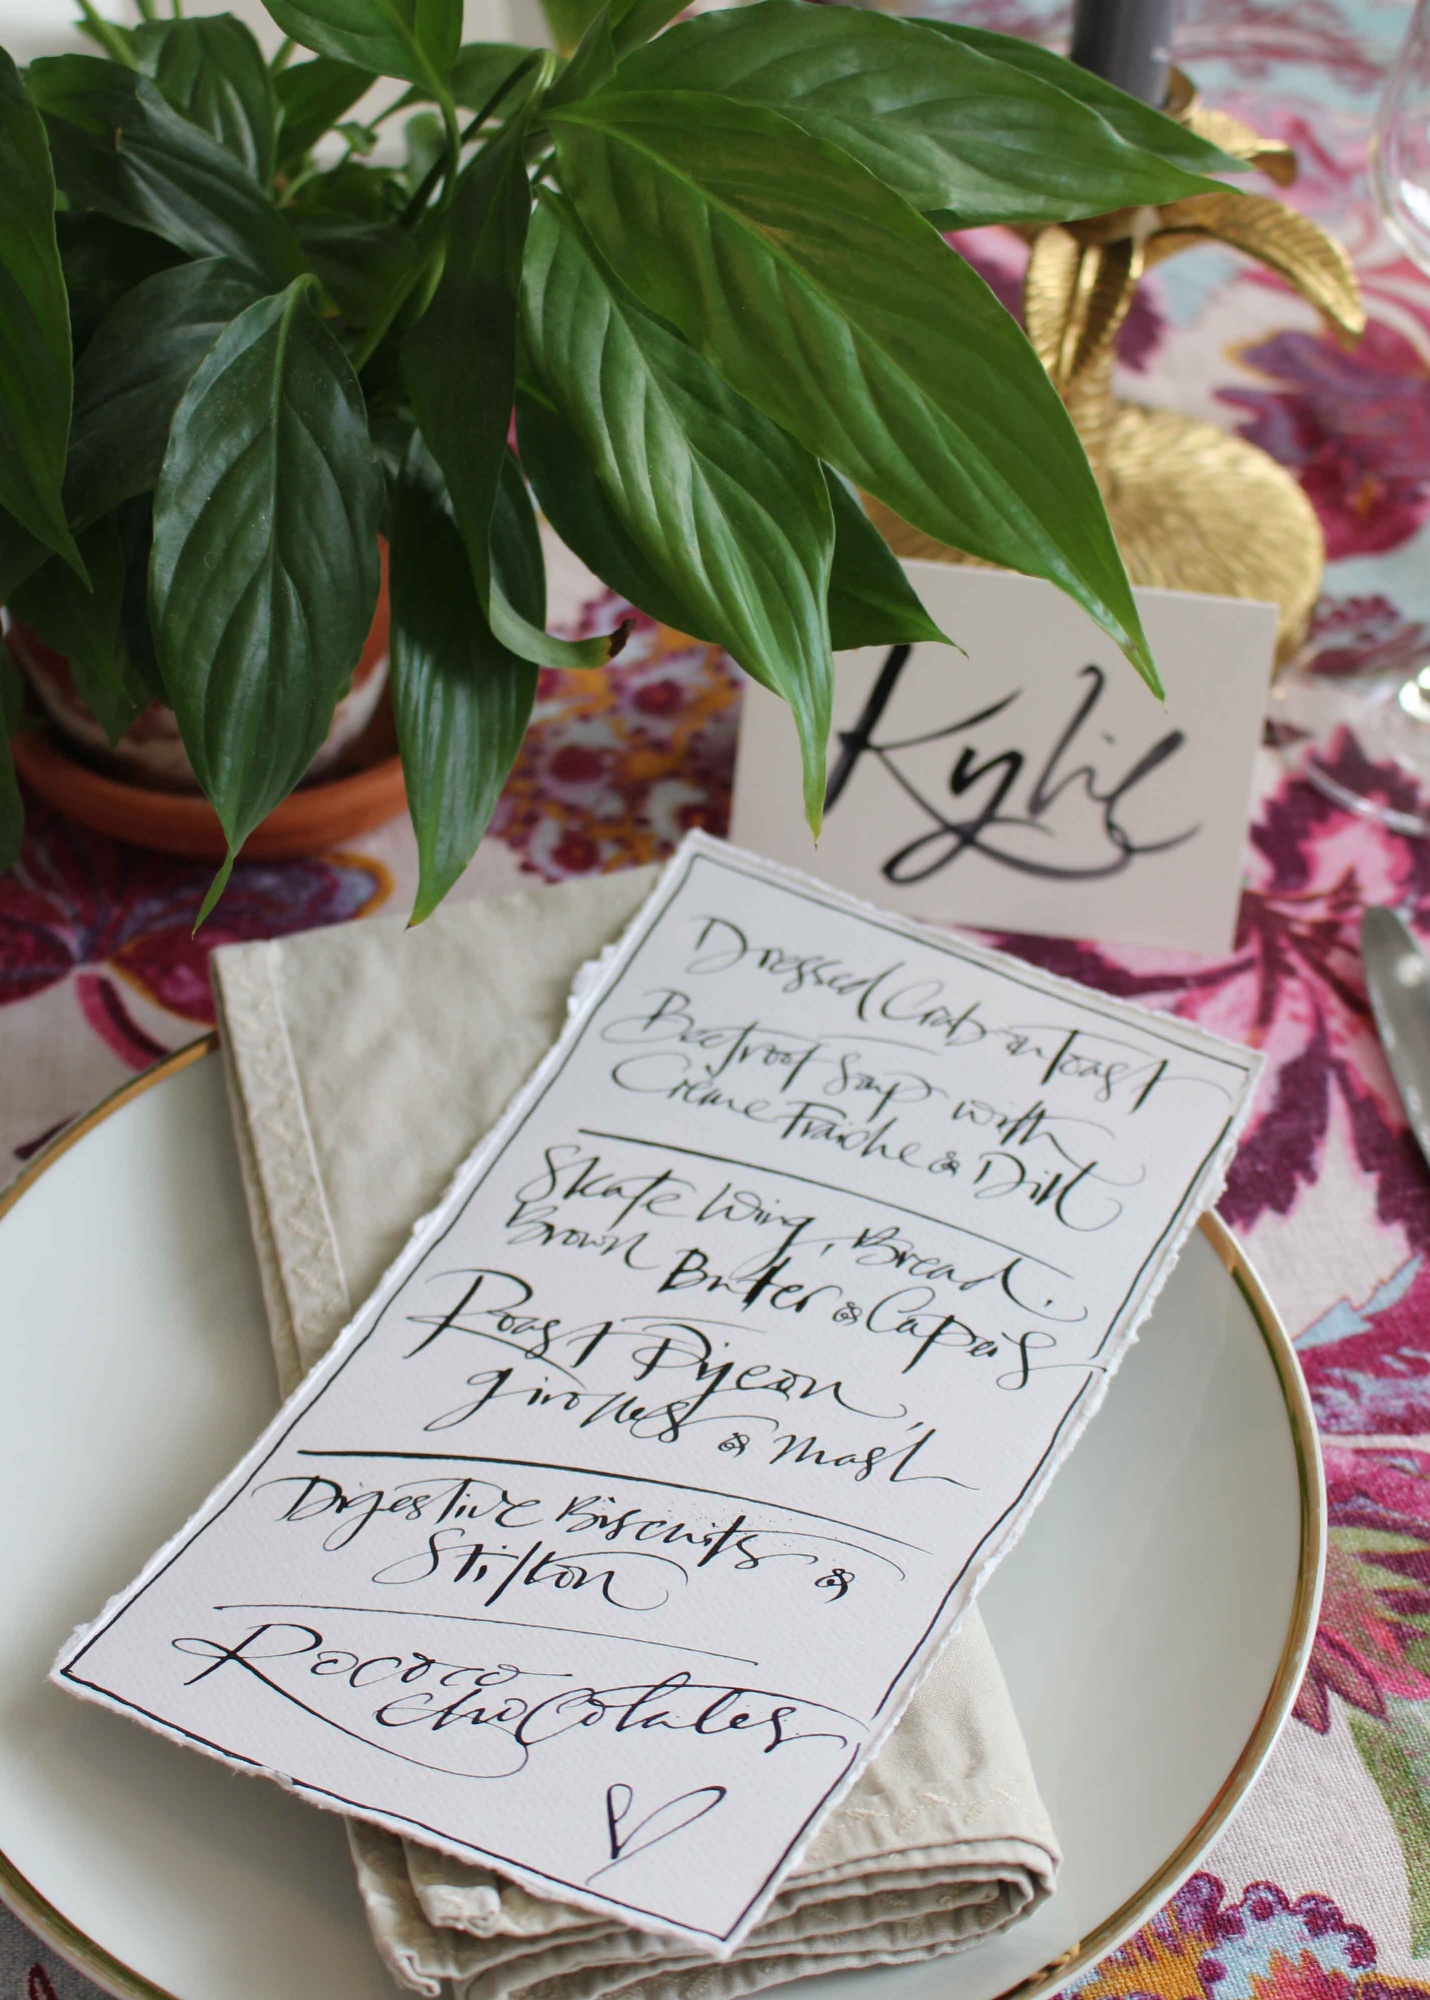 Kylie
Dressed Crab on Toast
Beetroot Soup with
Crème Fraiche & Dill
Skate Wing, Bread,
Brown Butter & Capers
Roast Pigeon,
girolles & mash
Digestive Biscuits &
Stilton
Rococo
chocolates